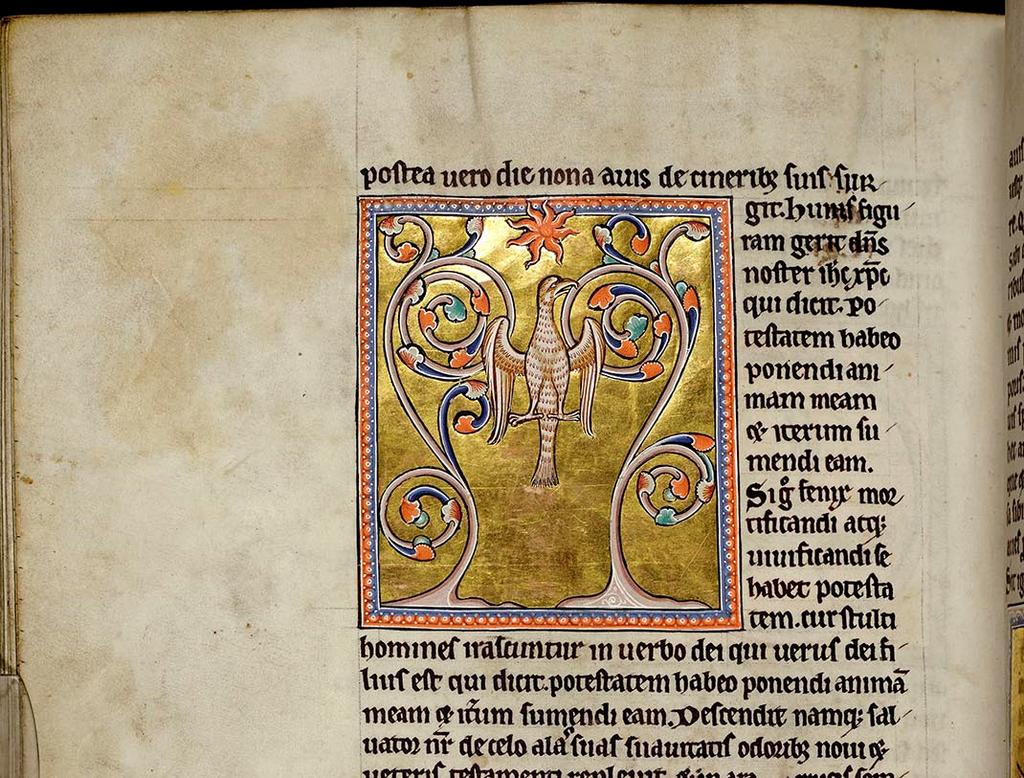 postea uero die nona auis de cineribꝫ suis sur
git. huius figu
ram gerit dn̄s
noster ih̄c xp̄c
qui dicit. Po
testatem habeo
ponendi ani
mam meam
⁊ iterum su
mendi eam.
Sig̊ fenix mor
tificandi atqꝫ
uiuificandi se
habet potesta
tem. cur stulti
homines irascuntur in uerbo dei qui uerus dei fi
lius est qui dicit. potestatem habeo ponendi animā
meam ⁊ it̄um sumendi eam. Descendit namqꝫ sal
uator nr̄ de celo alas suas suauitatis odoribꝫ noui ⁊
ueteris testamenti repleuit